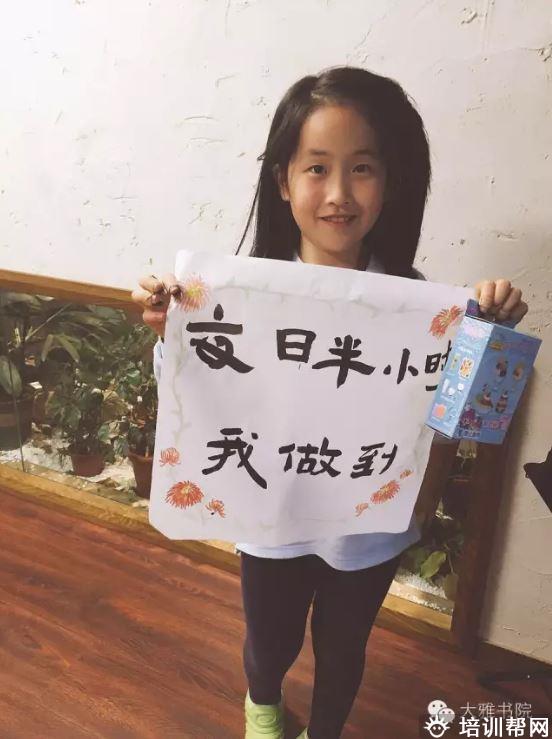 每日半小时
我做到
大雅书院
培训帮网